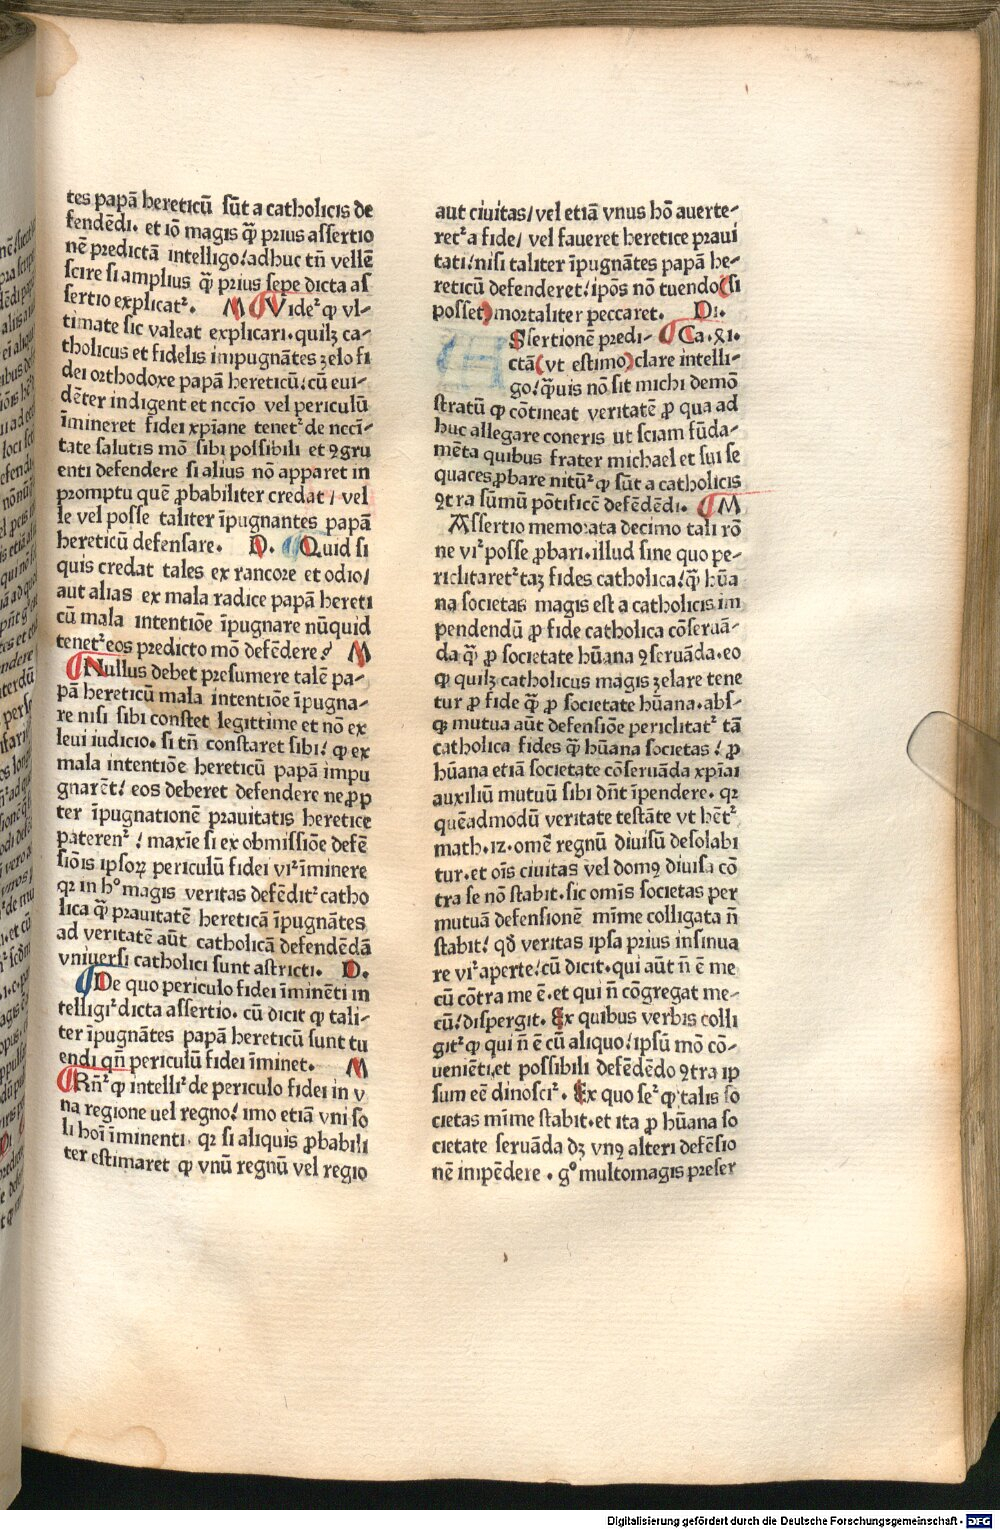 tes papā hereticū sūt a catholicis de
fendēdi. et iō magis q̄ʒ prius assertio
nē predictā intelligo/adhuc tn̄ vellē
scire si amplius q̄ʒ prius sepe dicta as
sertio explicatᷣ. M Videᷣ ꝙ vl-
timate sic valeat explicari. quilʒ ca-
tholicus et fidelis impugnātes zelo fi
dei orthodoxe papā hereticū/cū eui-
dēter indigent et nccīo vel periculū
īmineret fidei xp̄iane tenetᷣ de nccī-
tate salutis mō sibi possibili et ꝯgru
enti defendere si alius nō apparet in
promptu quē ꝓbabiliter credat / vel
le vel posse taliter īpugnantes papā
hereticū defensare. D. Quid si
quis credat tales ex rancore et odio/
aut alias ex mala radice papā hereti
cū mala intentiōe īpugnare nūquid
tenetᷣ eos predicto mō defēdere? M
Nullus debet presumere talē pa-
pā hereticū mala intentiōe īpugna-
re nisi sibi constet legittime et nō ex
leui iudicio. si tn̄ constaret sibi/ ꝙ ex
mala intentiōe hereticū papā impu
gnarēt/ eos deberet defendere ne ꝓp
ter īpugnationē prauitatis heretice
paterenᷣ / maxīe si ex obmissiōe defē
siōis ipsoꝝ periculū fidei viᷣ īminere
qꝛ in h° magis veritas defēditᷣ catho
lica q̄ʒ prauitatē hereticā īpugnātes
ad veritatē aūt catholicā defendēdā
vniuersi catholici sunt astricti. D.
De quo periculo fidei īminēti in
telligiᷣ dicta assertio. cū dicit ꝙ tali-
ter īpugnātes papā hereticū sunt tu
endi qn̄ periculū fidei īminet. M
Rn̄ᷣ ꝙ intelliᷣ de periculo fidei in v
na regione uel regno/ imo etiā vni so
li hoī īminenti. qꝛ si aliquis ꝓbabili
ter estimaret ꝙ vnū regnū vel regio
aut ciuitas/ vel etiā vnus hō auerte-
retᷣ a fide/ vel faueret heretice praui
tati/nisi taliter īpugnātes papā he-
reticū defenderet/ ip̄os nō tuendo(si
posset)mortaliter peccaret. Di.
ASsertionē predi- Ca.xi.
ctā(vt estimo)clare intelli-
go/q̄uis nō sit michi demō
stratū ꝙ cōtineat veritatē ꝓ qua ad
huc allegare coneris ut sciam fūda-
mēta quibus frater michael et sui se
quaces ꝓbare nitūᷣ ꝙ sūt a catholicis
ꝯtra sūmū pōtificē defēdēdi. M
Assertio memorata decimo tali rō
ne viᷣ posse ꝓbari. illud sine quo pe-
riclitaretᷣ taʒ fides catholica/q̄ʒ hūa
na societas magis est a catholicis im
pendendū ꝓ fide catholica cōseruā-
da q̄ʒ ꝓ societate hūana ꝯseruāda. eo
ꝙ quilʒ catholicus magis zelare tene
tur ꝓ fide q̄ʒ ꝓ societate hūana. abs-
qʒ mutua aūt defensiōe periclitatᷣ tā
catholica fides q̄ʒ hūana societas / ꝓ
hūana etiā societate cōseruāda xp̄iai
auxiliū mutuū sibi dn̄t īpendere. qꝛ
quēadmodū veritate testāte vt hētᷣ
math.12. omē regnū diuisū desolabi
tur. et oīs ciuitas vel domꝰ diuisa cō
tra se nō stabit. sic omīs societas per
mutuā defensionē mīme colligata n̄
stabit/ qđ veritas ipsa prius insinua
re viᷣ aperte/cū dicit. qui aūt n̄ ē me
cū cōtra me ē. et qui n̄ cōgregat me-
cū/dispergit. Ex quibus verbis colli
gitᷣ ꝙ qui n̄ ē cū aliquo/ ipsū mō cō-
uenīeti et possibili defēdēdo ꝯtra ip
sum eē dinosciᷣ. Ex quo seᷣ ꝙ talis so
cietas mīme stabit. et ita ꝓ hūana so
cietate seruāda dʒ vnꝰ alteri defēsio
nē impēdere . g° multomagis preser
Digitalisierung gefördert durch die Deutsche Forschungsgemeinschaft - DFG